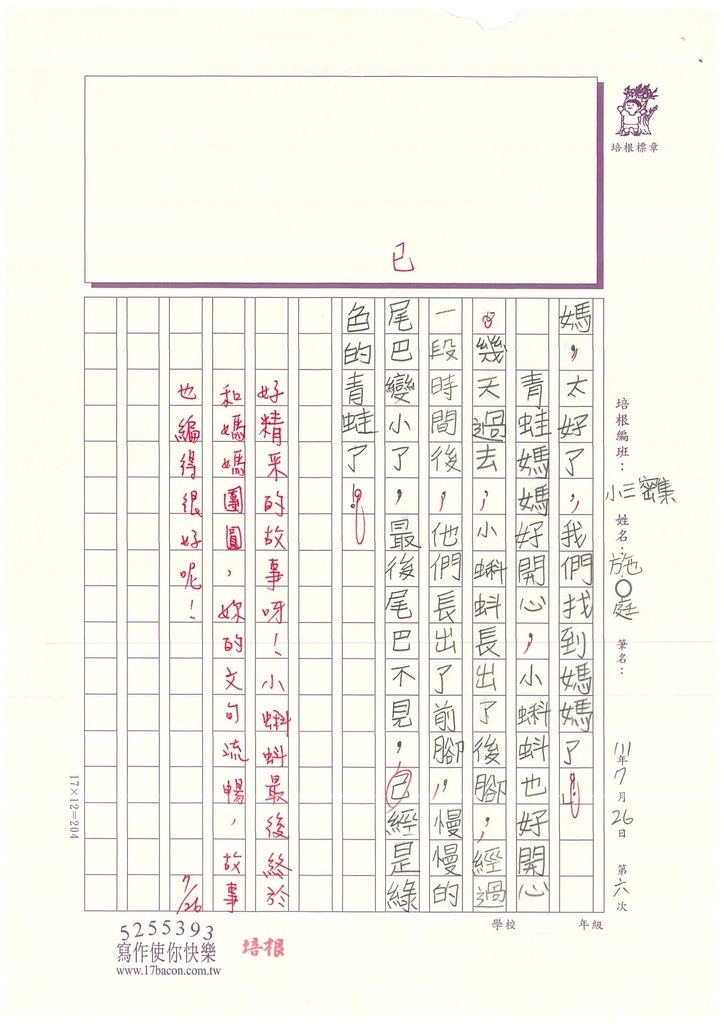 培根標章
培根編班：小三密集 姓名：施○庭 筆名： 111年7月26日 第六次
媽，太好了，我們找到媽媽了！
青蛙媽媽好開心，小蝌蚪也好開心
。幾天過去，小蝌蚪長出了後腳，經過
一段時間後，他們長出了前腳，慢慢的
尾巴變小了，最後尾巴不見，己經是綠
色的青蛙了！
已
好精采的故事呀！小蝌蚪最後終於
和媽媽團圓，妳的文句流暢，故事
也編得很好呢！ 7/26
17×12=204
學校 年級
5255393
寫作使你快樂
www.17bacon.com.tw
培根